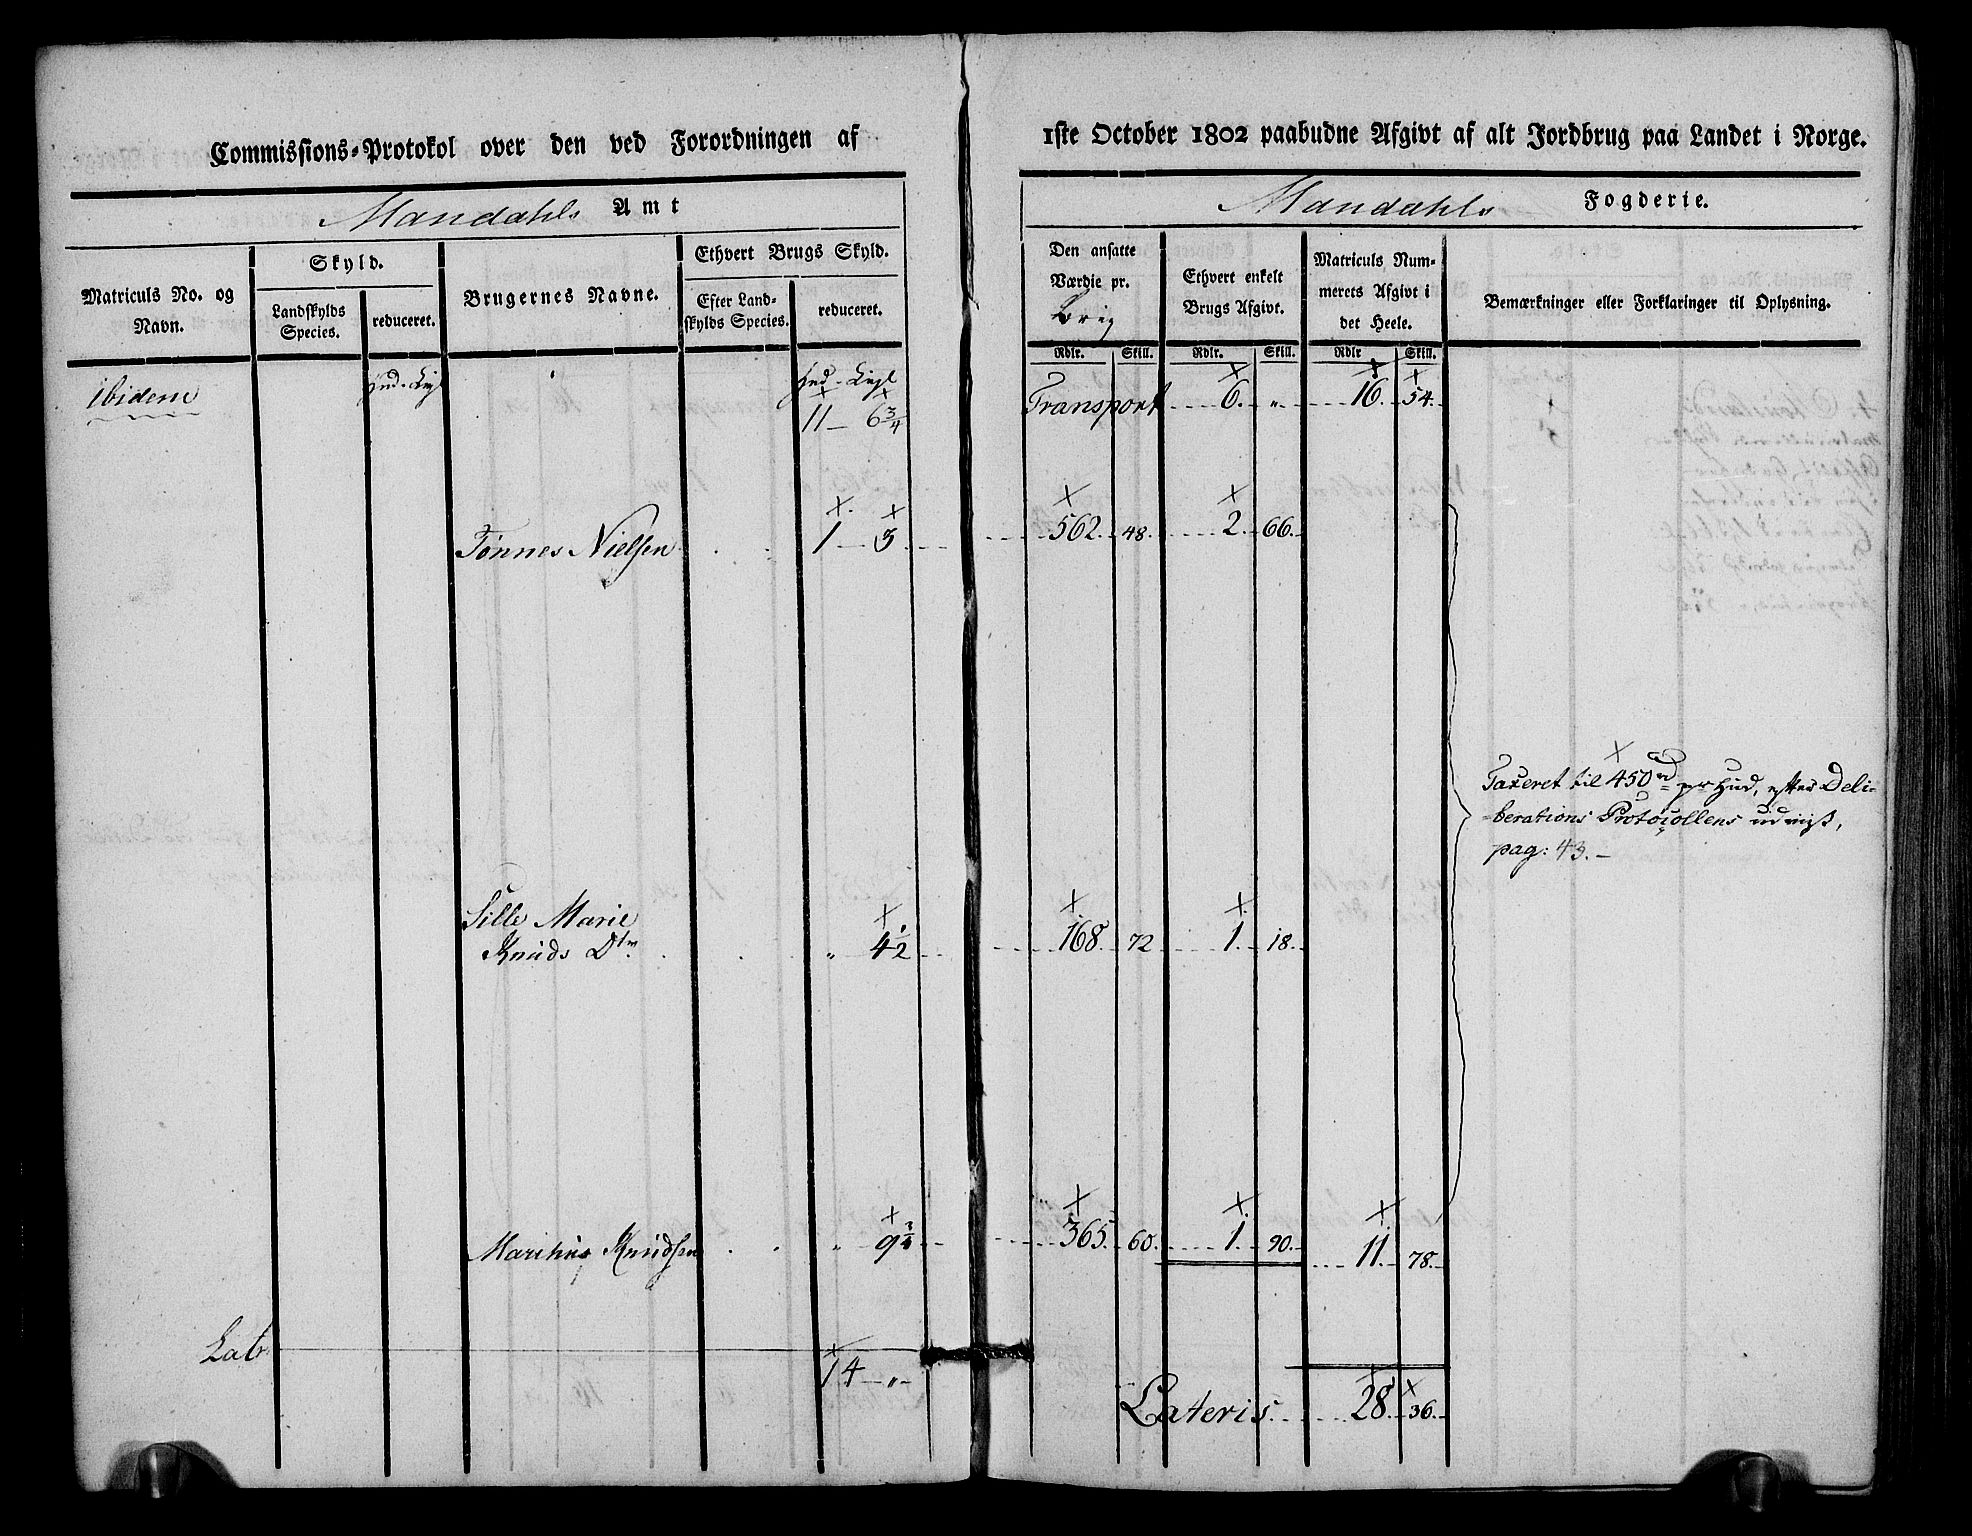 Commissions-Protokol over den ved Forordningen af
Mandahls Amt
Matriculs No. og Navn.
Skyld.
Landskylds Species.
reduceret.
Brugernes Navne.
Ethvert Brugs Skyld.
Efter Landskylds Species.
reduceret.
ibidem
Hud - Lispl
Hud - Lispl
11 - 6 3/4
Tønnes Nielsen 1 - 3
Sille Marie
Knuds Dtr „ 4 1/2
Knudsen „ 9 3/4
Lat: 14 - „ -
1ste October 1802 paabudne Afgivt af alt Jordbrug paa Landet i Norge.
Mandahls Fogderie.
Den ansatte Værdie pr.
Rdlr. Skill.
Ethvert enkelt Brugs Afgivt.
Rdlr. Skill.
Matriculs Nummerets Afgivt i det Heele.
Rdlr Skill.
Bemærkninger eller Forklaringer til Oplysning.
Transport 6. „ 16. 54.
562. 48. 2. 66.
Taxeret til 450 rd pr Hud, efter Deli-
berations Protocollens udviis,
pag: 43. -
168. 72 1. 18.
365. 60. 1. 90. 11. 78.
Lateris 28. 36.